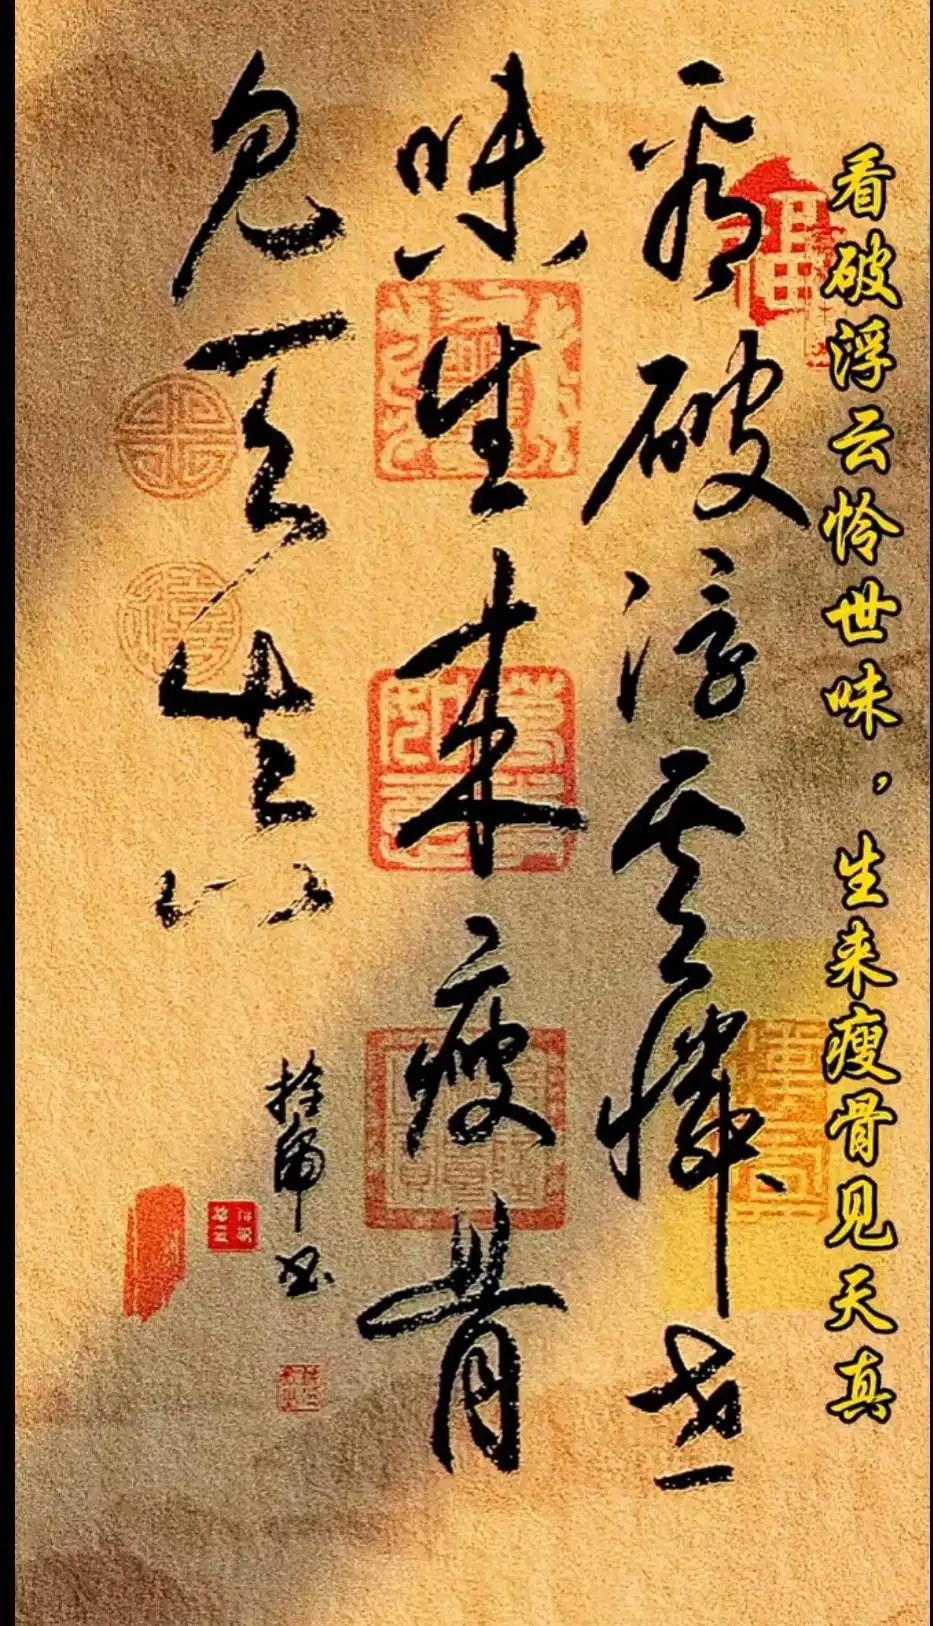 看破浮云怜世味，生来瘦骨见天真
看破浮雲憐世
味生来瘦骨
见天真